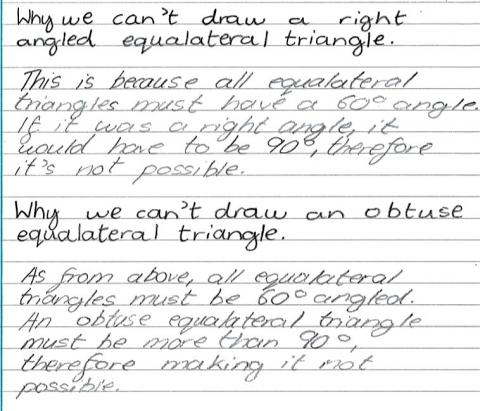 Why we can't draw a right
angled equalateral triangle.
This is because all equalateral
triangles must have a 60° angle.
If it was a right angle, it
would have to be 90°, therefore
it's not possible.
Why we can't draw an obtuse
equalateral triangle.
As from above, all equalateral
triangles must be 60° angled.
An obtuse equalateral triangle
must be more than 90°,
therefore making it not
possible.